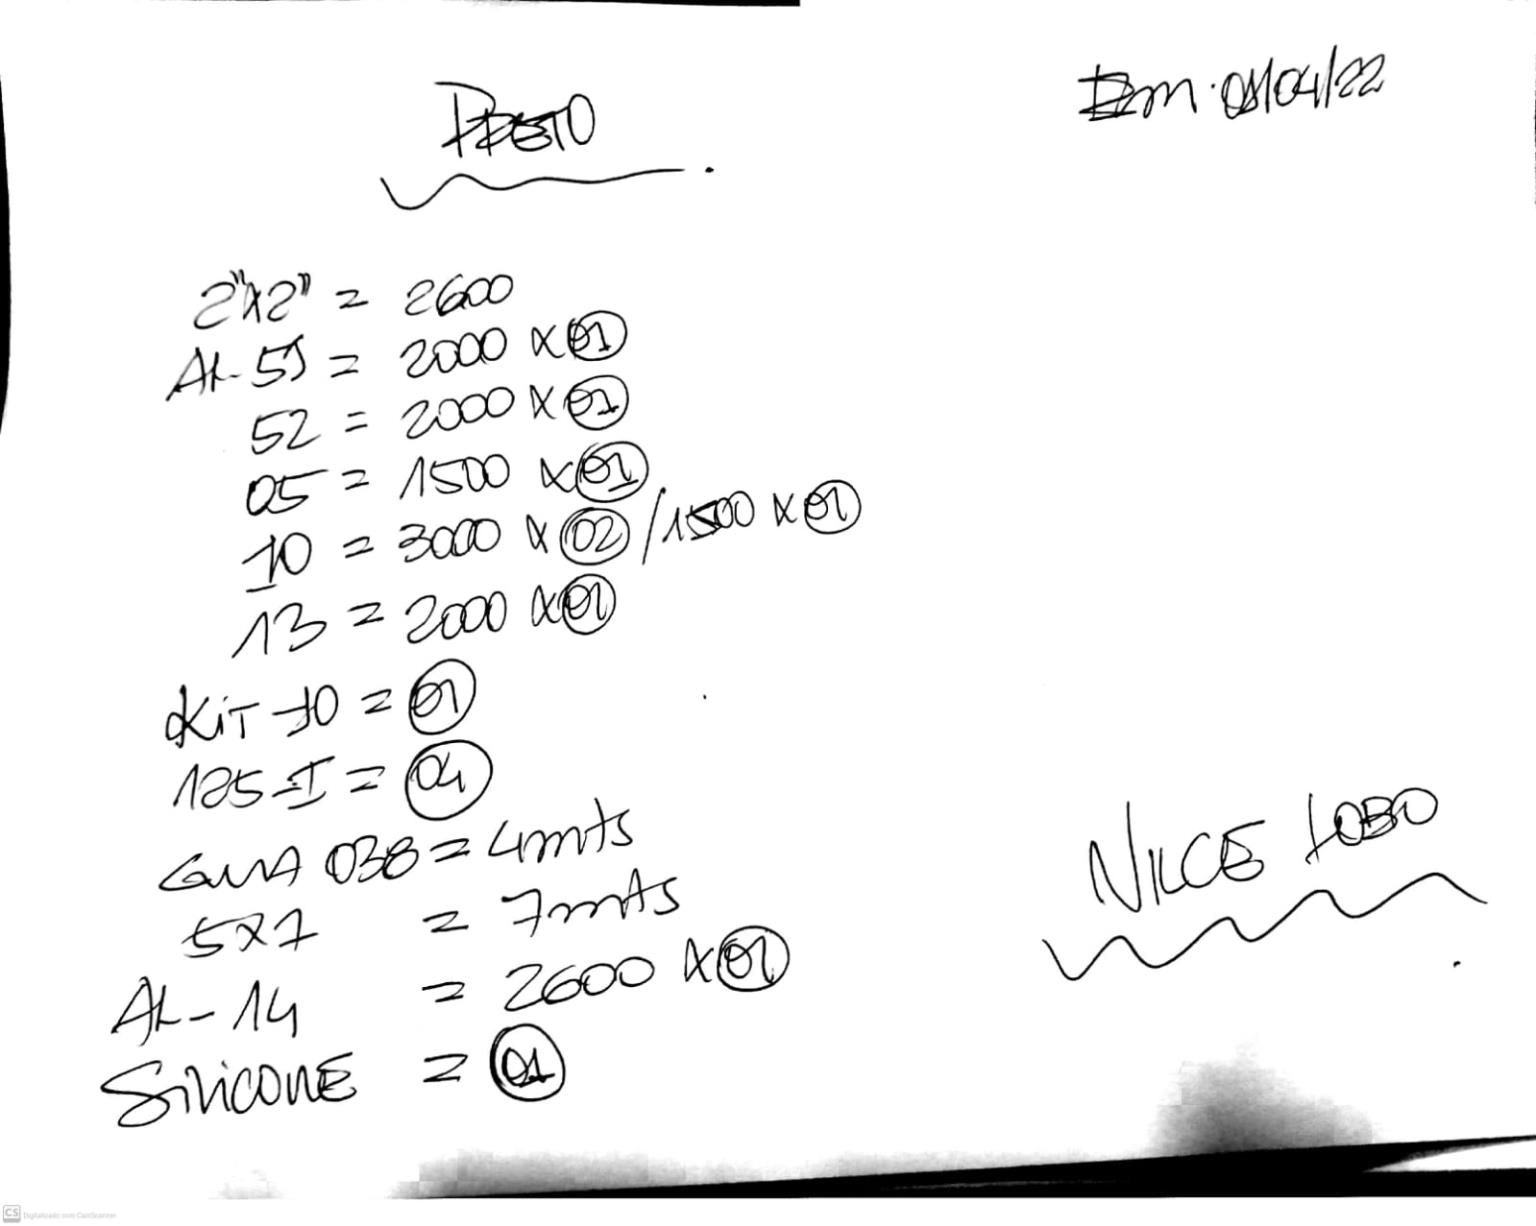 PRETO
Em: 01/04/22
2"x2" = 2600
AL-51 = 2000 x 01
52 = 2000 x 01
05 = 1500 x 01
10 = 3000 x 02 / 1500 x 01
13 = 2000 x 01
KiT-10 = 01
125-I = 04
038 = 4mts
5x7 = 7mts
AL-14 = 2600 x 01
SiliCONE = 01
NILCE LOBO
CS Digitalizado com CamScanner